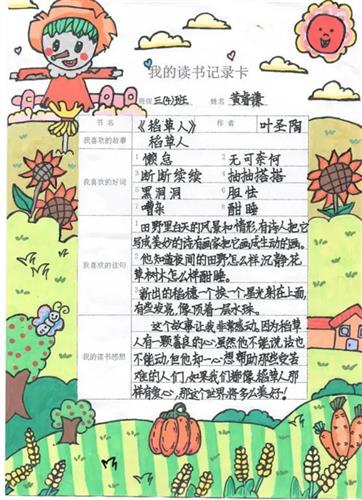 我的读书记录卡
班级 三(4)班 姓名 黄睿谦
书名 《稻草人》 作者 叶圣陶
我喜欢的故事 稻草人
我喜欢的好词
1 懒怠 2 无可奈何
3 断断续续 4 抽抽搭搭
5 黑洞洞 6 胆怯
7 嘈杂 8 酣睡
我喜欢的佳句
1 田野里白天的风景和情形,有诗人把它
写成美妙的诗,有画家把它画成生动的画。
2 他知道夜间的田野怎么样沉静,花
草树木怎么样酣睡。
3 新出的稻穗一个挨一个,星光射在上面,
有些发亮,像顶着一层水珠。
我的读书感想
这个故事让我非常感动,因为稻草
人有一颗善良的心虽然他不能说话也
不能动,但他却一心想帮助那些受苦
难的人们,如果我们都像稻草人那
样有爱心,那这个世界将多么美好!